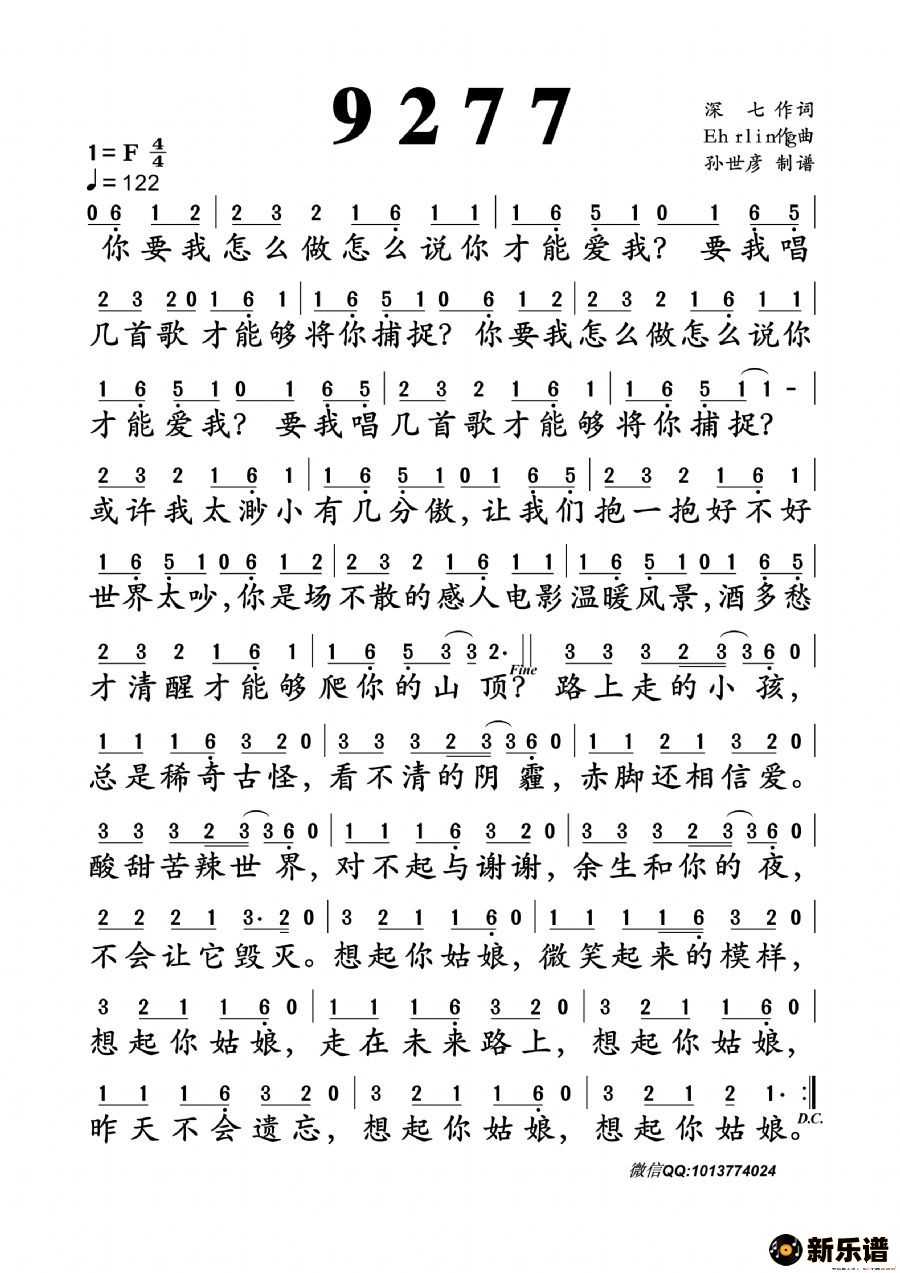 9277
深 七 作词
Ehrling作曲
孙世彦 制谱
1=F 4/4
♩=122
0 6 1 2 | 2 3 2 1 6 1 1 | 1 6 5 1 0 1 6 5 |
你要我怎么做怎么说你才能爱我? 要我唱
2 3 2 0 1 6 1 | 1 6 5 1 0 6 1 2 | 2 3 2 1 6 1 1 |
几首歌 才能够将你捕捉? 你要我怎么做怎么说你
1 6 5 1 0 1 6 5 | 2 3 2 1 6 1 | 1 6 5 1 1 - |
才能爱我? 要我唱几首歌才能够将你捕捉?
2 3 2 1 6 1 | 1 6 5 1 0 1 6 5 | 2 3 2 1 6 1 |
或许我太渺小有几分傲,让我们抱一抱好不好
1 6 5 1 0 6 1 2 | 2 3 2 1 6 1 1 | 1 6 5 1 0 1 6 5 |
世界太吵,你是场不散的感人电影温暖风景,酒多愁
2 3 2 1 6 1 | 1 6 5 3 3 2· || 3 3 3 2 3 3 6 0 |
Fine
才清醒才能够爬你的山 顶? 路上走的小 孩,
1 1 1 6 3 2 0 | 3 3 3 2 3 3 6 0 | 1 1 2 1 3 2 0 |
总是稀奇古怪,看不清的阴 霾,赤脚还相信爱。
3 3 3 2 3 3 6 0 | 1 1 1 6 3 2 0 | 3 3 3 2 3 3 6 0 |
酸甜苦辣世 界,对不起与谢谢,余生和你的 夜,
2 2 2 1 3· 2 0 | 3 2 1 1 6 0 | 1 1 1 1 6 3 2 0 |
不会让它毁灭。想起你姑娘,微笑起来的模样,
3 2 1 1 6 0 | 1 1 1 6 3 2 0 | 3 2 1 1 6 0 |
想起你姑娘,走在未来路上,想起你姑娘,
1 1 1 6 3 2 0 | 3 2 1 1 6 0 | 3 2 1 2 1· :||
D.C.
昨天不会遗忘,想起你姑娘,想起你姑娘。
微信QQ:1013774024
新乐谱